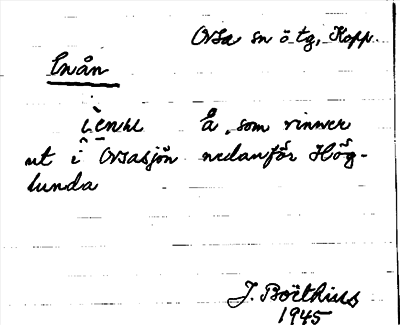 Orsa sn ö tg, Kopp.
Enån
Å, som rinner
ut i Orsasjön nedanför Hög-
lunda
J. Boëthius
1945